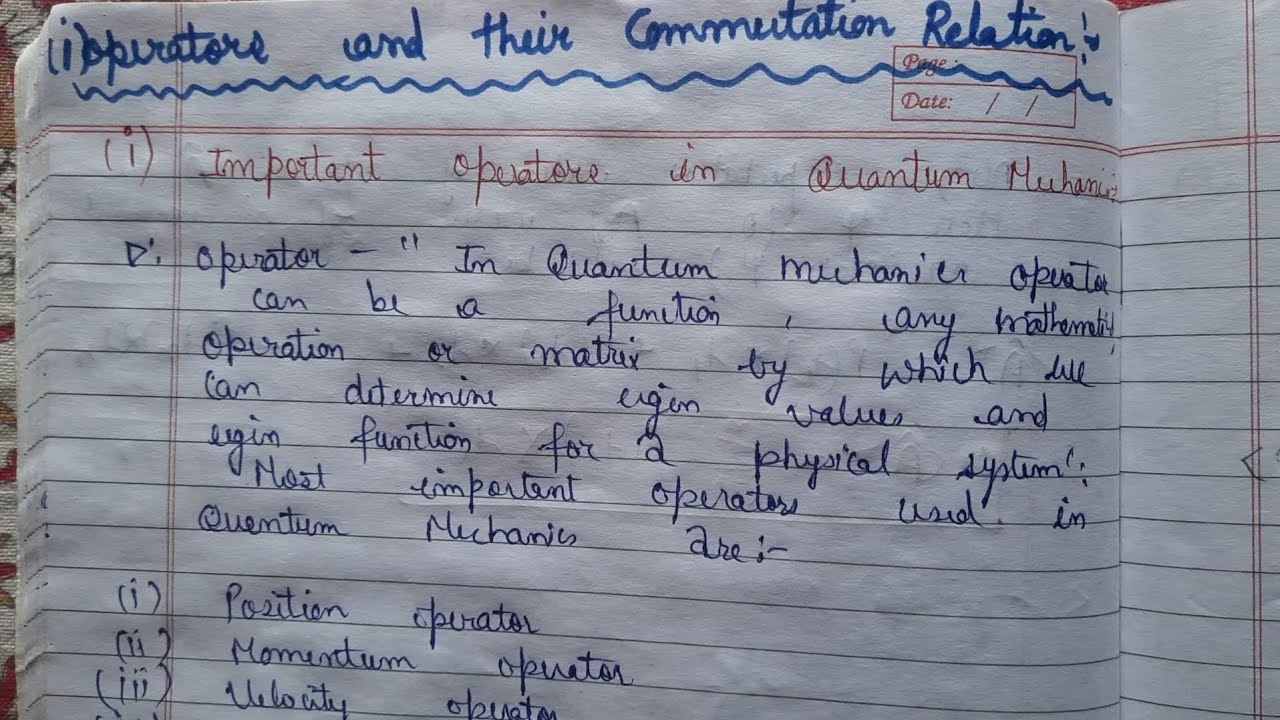 (i) operators and their Commutation Relation:
Page:
Date: / /
(i) Important operators in Quantum Mechanics
operator - " In Quantum mechanics operator
can be a function , any mathematical
operation or matrix by which we
can determine eigen values and
eigin function for a physical system".
Most important operators used in
Quentum Mechanics are:-
(i) Position operator
(ii) Momentum operator
(iii) Velocity operator